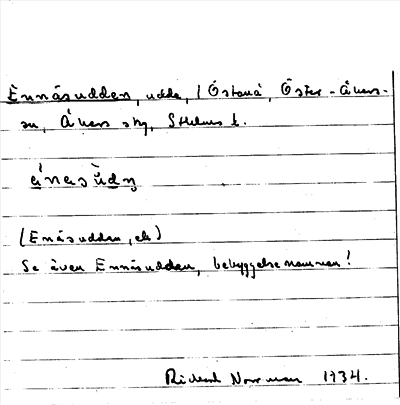 Ennäsudden, udde, (Östanå, Öster-Åkers-
sn, Åkers skg, Sthlms l.
(Enäsudden, ek)
Se även Ennäsudden, bebyggelsenamnen!
Rickard Norrman 1934.